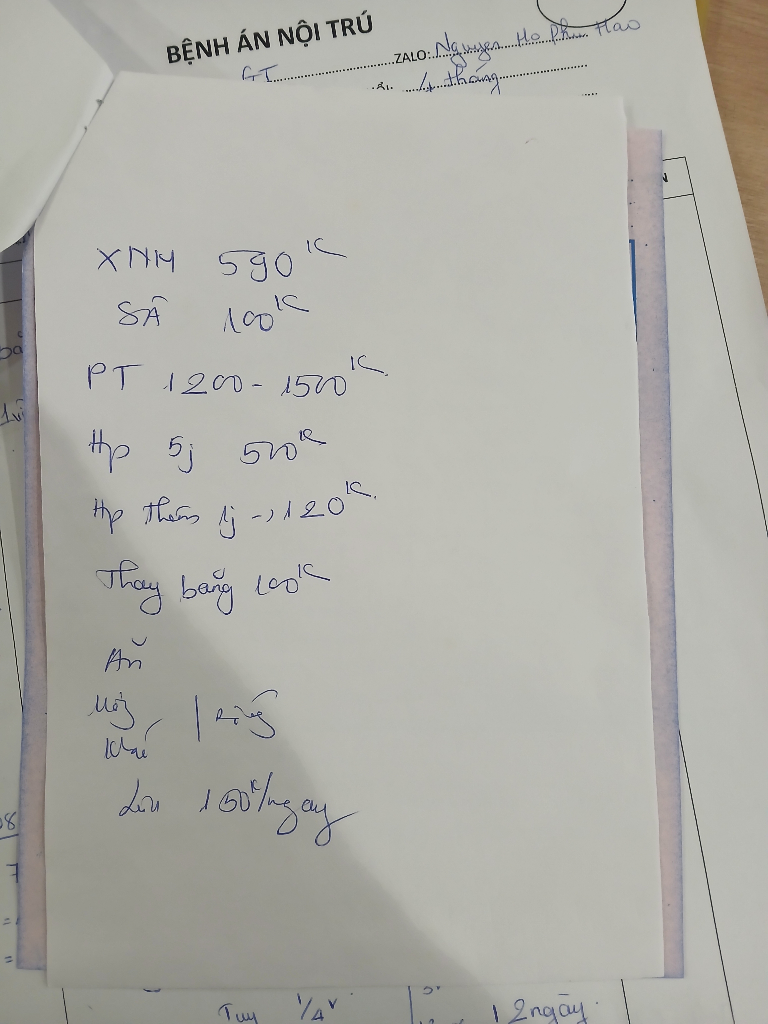 BỆNH ÁN NỘI TRÚ
ZALO: Nguyen Ho Phu Hao
GT
4 tháng
XNM 590K
SÂ 100K
PT 1200 - 1500K
Hp 5j 500K
Hp thêm 1j -> 120K
Thay băng 100K
Ăn
Khác
Riêng
Lưu 150K/ngay
08
7
=
=
Tuy 1/4 v
12ngày